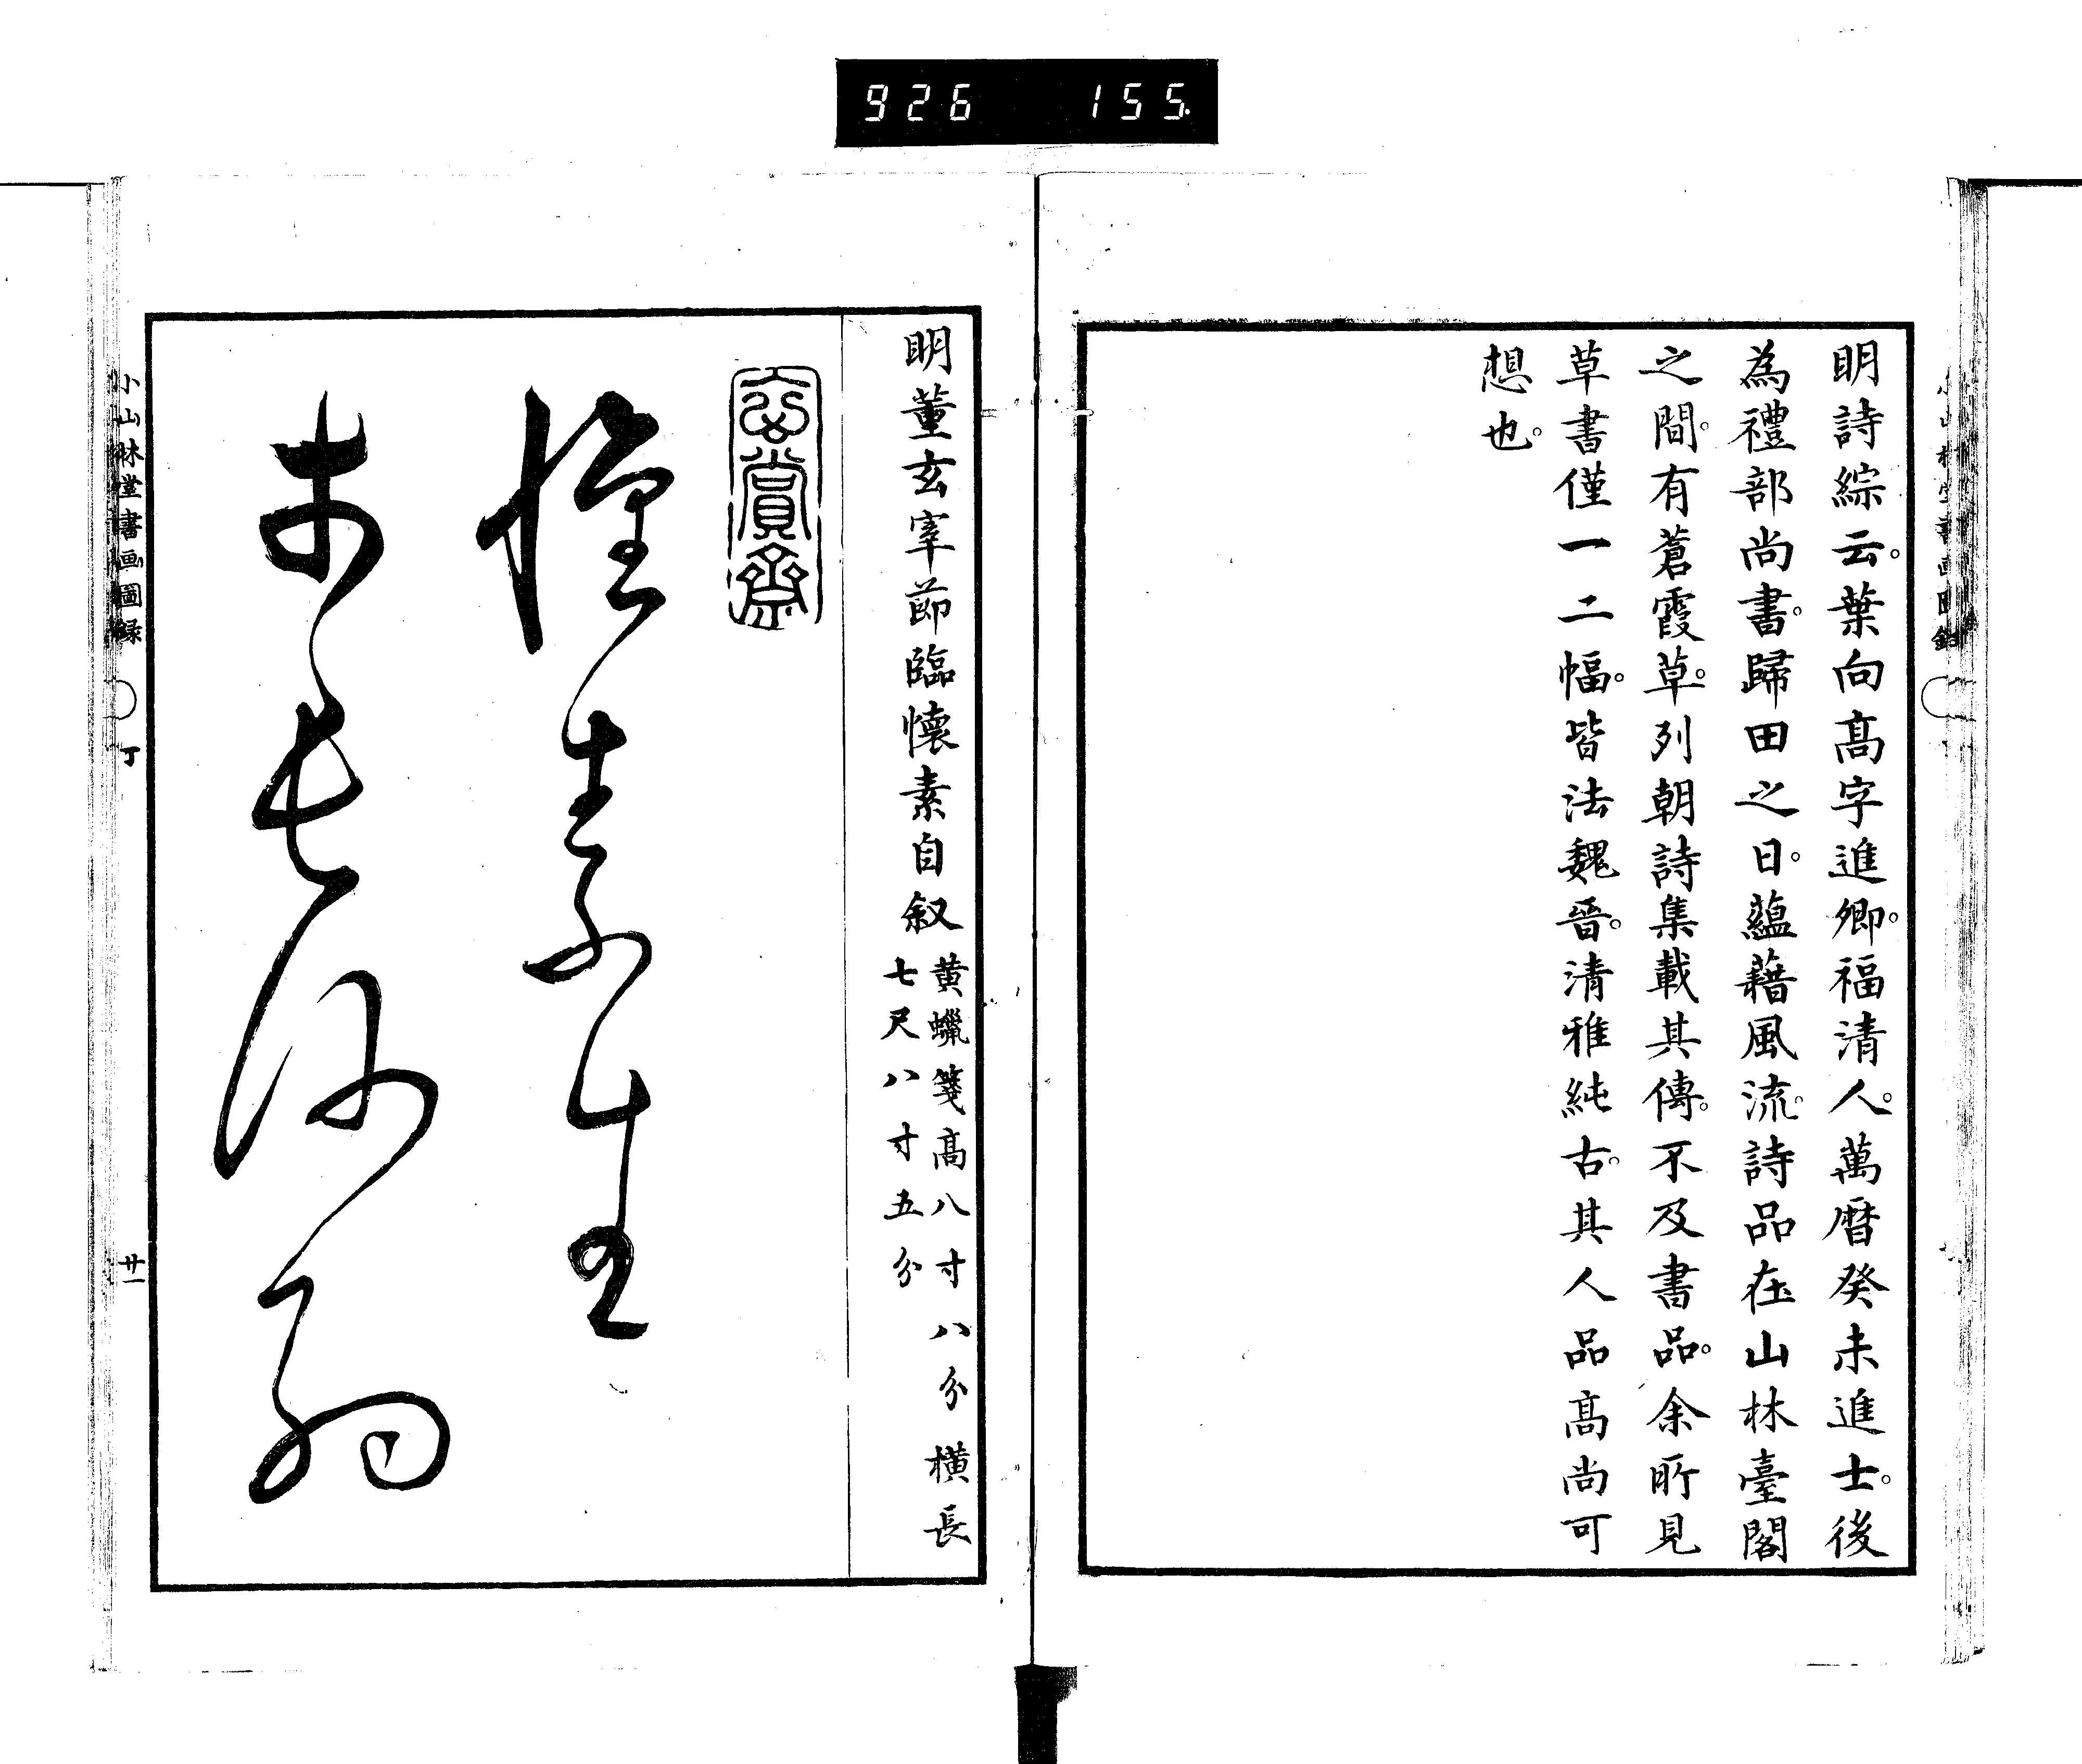 926 155
明詩綜云。葉向髙字進卿。福清人。萬暦癸未進士。後
為禮部尚書。歸田之日。蘊藉風流。詩品在山林臺閣
之間。有蒼霞草。列朝詩集載其傳。不及書品。余所見
草書僅一二幅。皆法魏晉。清雅純古。其人品髙尚可
想也。
明董玄宰節臨懐素自叙
黄蠟箋髙八寸八分横長
七尺八寸五分
玄賞齋
懐素生
未長沙幼
小山林堂書画圖録
丁
廿一